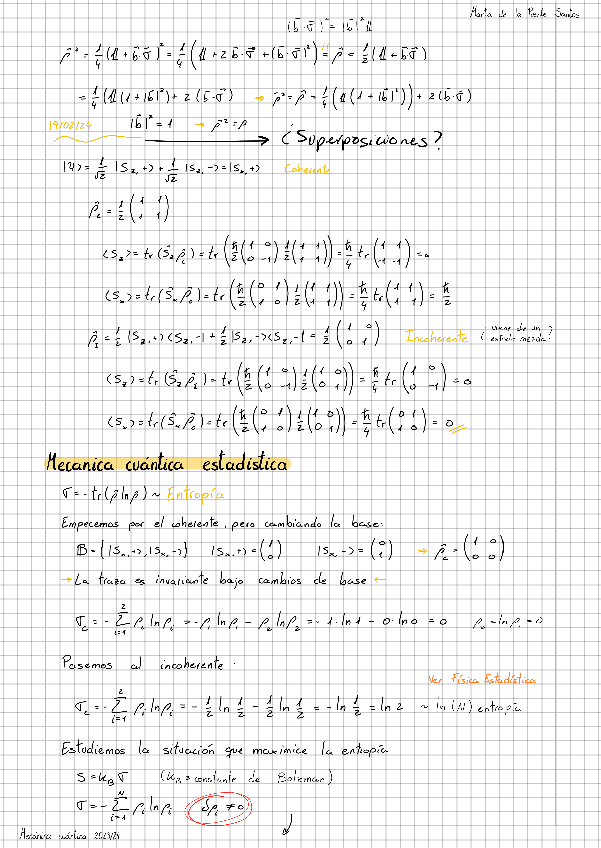 Marta de la Puente Santos
(b⃗·σ⃗)² = |b⃗|² 𝟙
ρ̂² = 1/4 (𝟙 + b⃗·σ⃗)² = 1/4 (𝟙 + 2 b⃗·σ⃗ + (b⃗·σ⃗)²) = ρ̂ = 1/2 (𝟙 + b⃗σ⃗)
= 1/4 (𝟙(1 + |b⃗|²) + 2 (b⃗·σ⃗)) → ρ̂² = ρ̂ = 1/4 (𝟙(1 + |b⃗|²)) + 2(b⃗·σ⃗)
19/02/24 |b⃗|² = 1 → ρ̂² = ρ ¿Superposiciones?
|Ψ⟩ = 1/√2 |S_z,+⟩ + 1/√2 |S_z,-⟩ = |S_x,+⟩ Coherente
ρ̂_c = 1/2 (1 1; 1 1)
⟨S_z⟩ = tr(Ŝ_z ρ̂_c) = tr(ħ/2 (1 0; 0 -1) 1/2 (1 1; 1 1)) = ħ/4 tr(1 1; -1 -1) = 0
⟨S_x⟩ = tr(Ŝ_x ρ̂_c) = tr(ħ/2 (0 1; 1 0) 1/2 (1 1; 1 1)) = ħ/4 tr(1 1; 1 1) = ħ/2
ρ̂_I = 1/2 |S_z,+⟩⟨S_z,-| + 1/2 |S_z,-⟩⟨S_z,-| = 1/2 (1 0; 0 1) Incoherente (viene de un estado mezcla?
⟨S_z⟩ = tr(Ŝ_z ρ̂_I) = tr(ħ/2 (1 0; 0 -1) 1/2 (1 0; 0 1)) = ħ/4 tr(1 0; 0 -1) = 0
⟨S_x⟩ = tr(Ŝ_x ρ̂_c) = tr(ħ/2 (0 1; 1 0) 1/2 (1 0; 0 1)) = ħ/4 tr(0 1; 1 0) = 0
Mecanica cuántica estadística
σ = -tr(ρ̂ ln ρ̂) ~ Entropía
Empecemos por el coherente, pero cambiando la base:
B = {|S_x,+⟩, |S_x,-⟩} |S_x,+⟩ = (1; 0) |S_x,-⟩ = (0; 1) → ρ̂_c = (1 0; 0 0)
→ La traza es invariante bajo cambios de base ←
σ_c = -∑_{i=1}^{2} ρ_i ln ρ_i = -ρ_1 ln ρ_1 - ρ_2 ln ρ_2 = -1·ln 1 - 0·ln 0 = 0
Pasemos al incoherente.
Ver Física Estadística
σ_c = -∑_{i=1}^{2} ρ_i ln ρ_i = -1/2 ln 1/2 - 1/2 ln 1/2 = -ln 1/2 = ln 2 ~ ln(N) entropía
Estudiemos la situación que maximice la entropía
S = k_B σ (k_B = constante de Boltzman)
σ = -∑_{i=1}^{N} ρ_i ln ρ_i δρ_i ≠ 0
Mecánica cuántica 2023/24